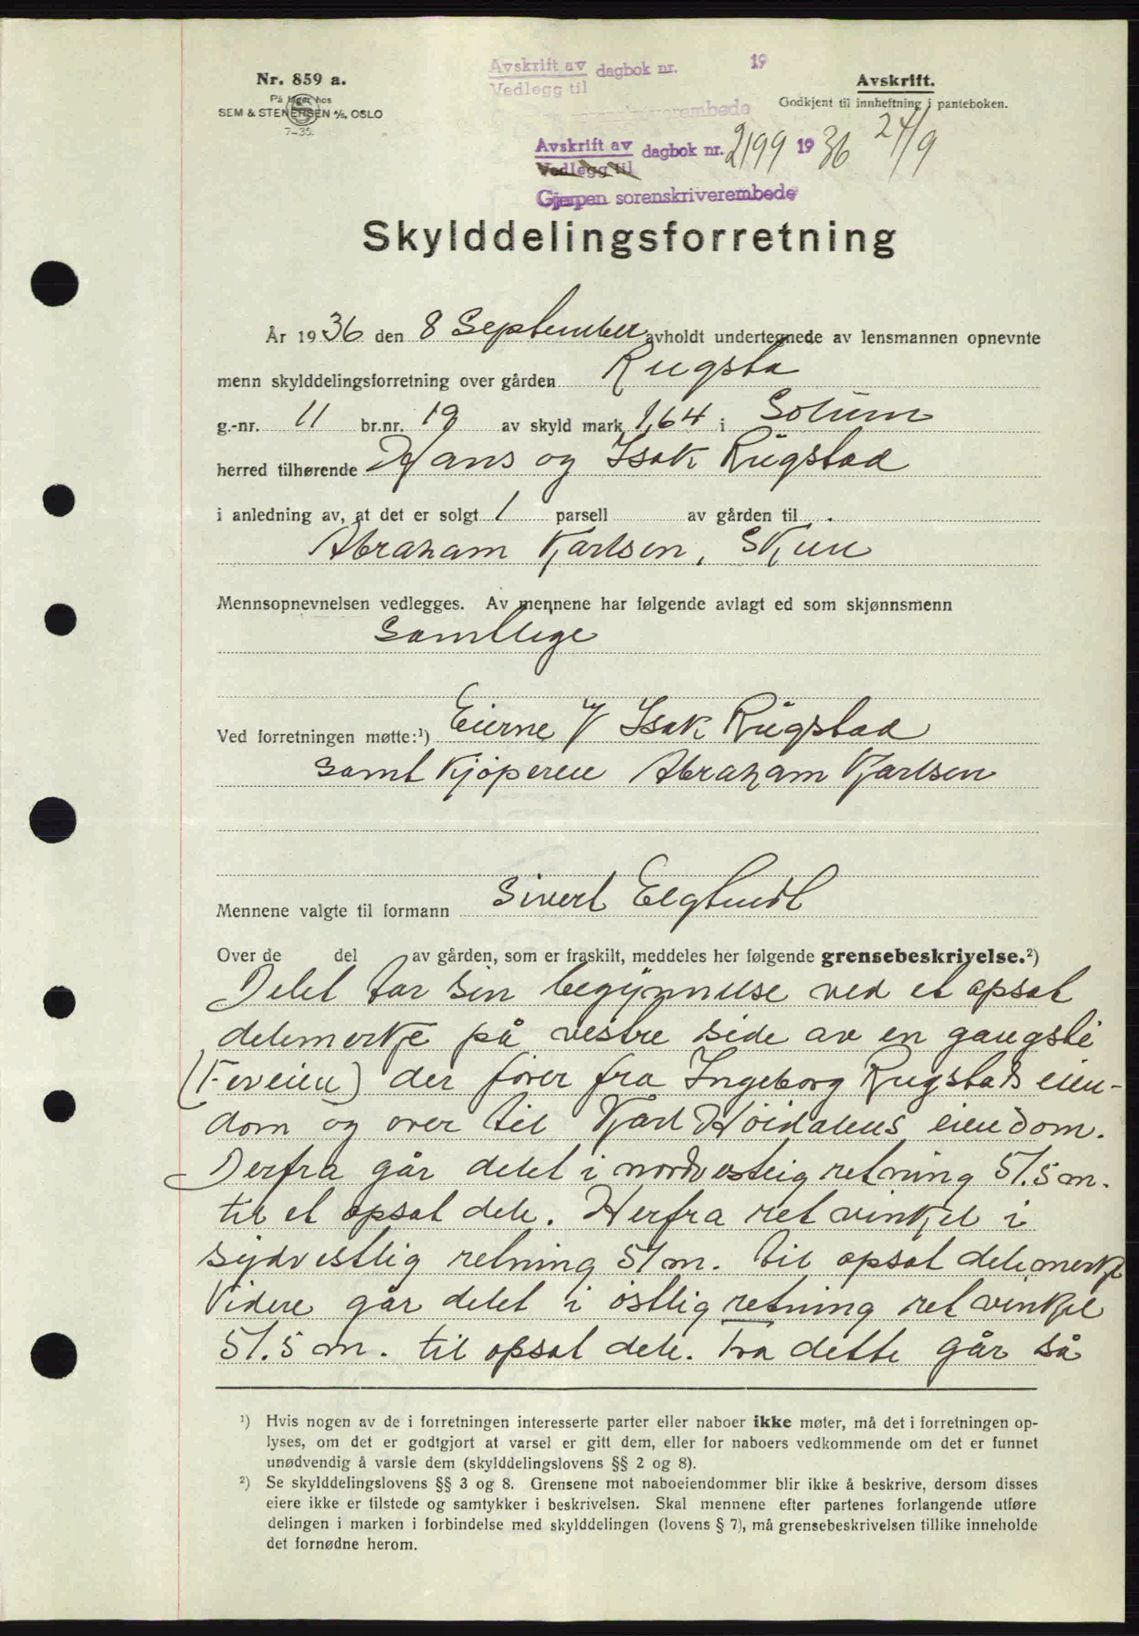 Avskrift av dagbok nr. 19
Vedlegg til
rembede
Nr. 859 a.
På lager hos
SEM & STENERSEN A/S, OSLO
7-35.
Avskrift.
Godkjent til innheftning i panteboken.
Avskrift av dagbok nr. 2199 1936 24/9
Vedlegg til
Gjerpen sorenskriverembede
Skylddelingsforretning
År 1936 den 8 September avholdt undertegnede av lensmannen opnevnte
menn skylddelingsforretning over gården Rugsta
g.-nr. 11 br.nr. 19 av skyld mark 1,64 i Solum
herred tilhørende Hans og Isak Rugstad
i anledning av, at det er solgt 1 parsell av gården til .
Abraham Karlsen, Skien
Mennsopnevnelsen vedlegges. Av mennene har følgende avlagt ed som skjønnsmenn
Samtlige
Ved forretningen møtte:¹) Eierne v/ Isak Rugstad
samt kjøperen Abraham Karlsen
Mennene valgte til formann Sivert
Over de del av gården, som er fraskilt, meddeles her følgende grensebeskrivelse.²)
Delet tar sin begynnelse ved et opsat
delemerke på vestre side av en gangsti
(Feveien) der fører fra Ingeborg Rugstads eien-
dom og over til Karl Høidalens eiendom.
Derfra går delet i nordvestlig retning 51.5 m.
til et opsat dele. Herfra ret vinkel i
sydvestlig retning 51 m. til opsat delemerke
Videre går delet i østlig retning ret vinkel
51.5 m. til opsat dele. Fra dette går så
¹) Hvis nogen av de i forretningen interesserte parter eller naboer ikke møter, må det i forretningen op-
lyses, om det er godtgjort at varsel er gitt dem, eller for naboers vedkommende om det er funnet
unødvendig å varsle dem (skylddelingslovens §§ 2 og 8).
²) Se skylddelingslovens §§ 3 og 8. Grensene mot naboeiendommer blir ikke å beskrive, dersom disses
eiere ikke er tilstede og samtykker i beskrivelsen. Skal mennene efter partenes forlangende utføre
delingen i marken i forbindelse med skylddelingen (lovens § 7), må grensebeskrivelsen tillike inneholde
det fornødne herom.